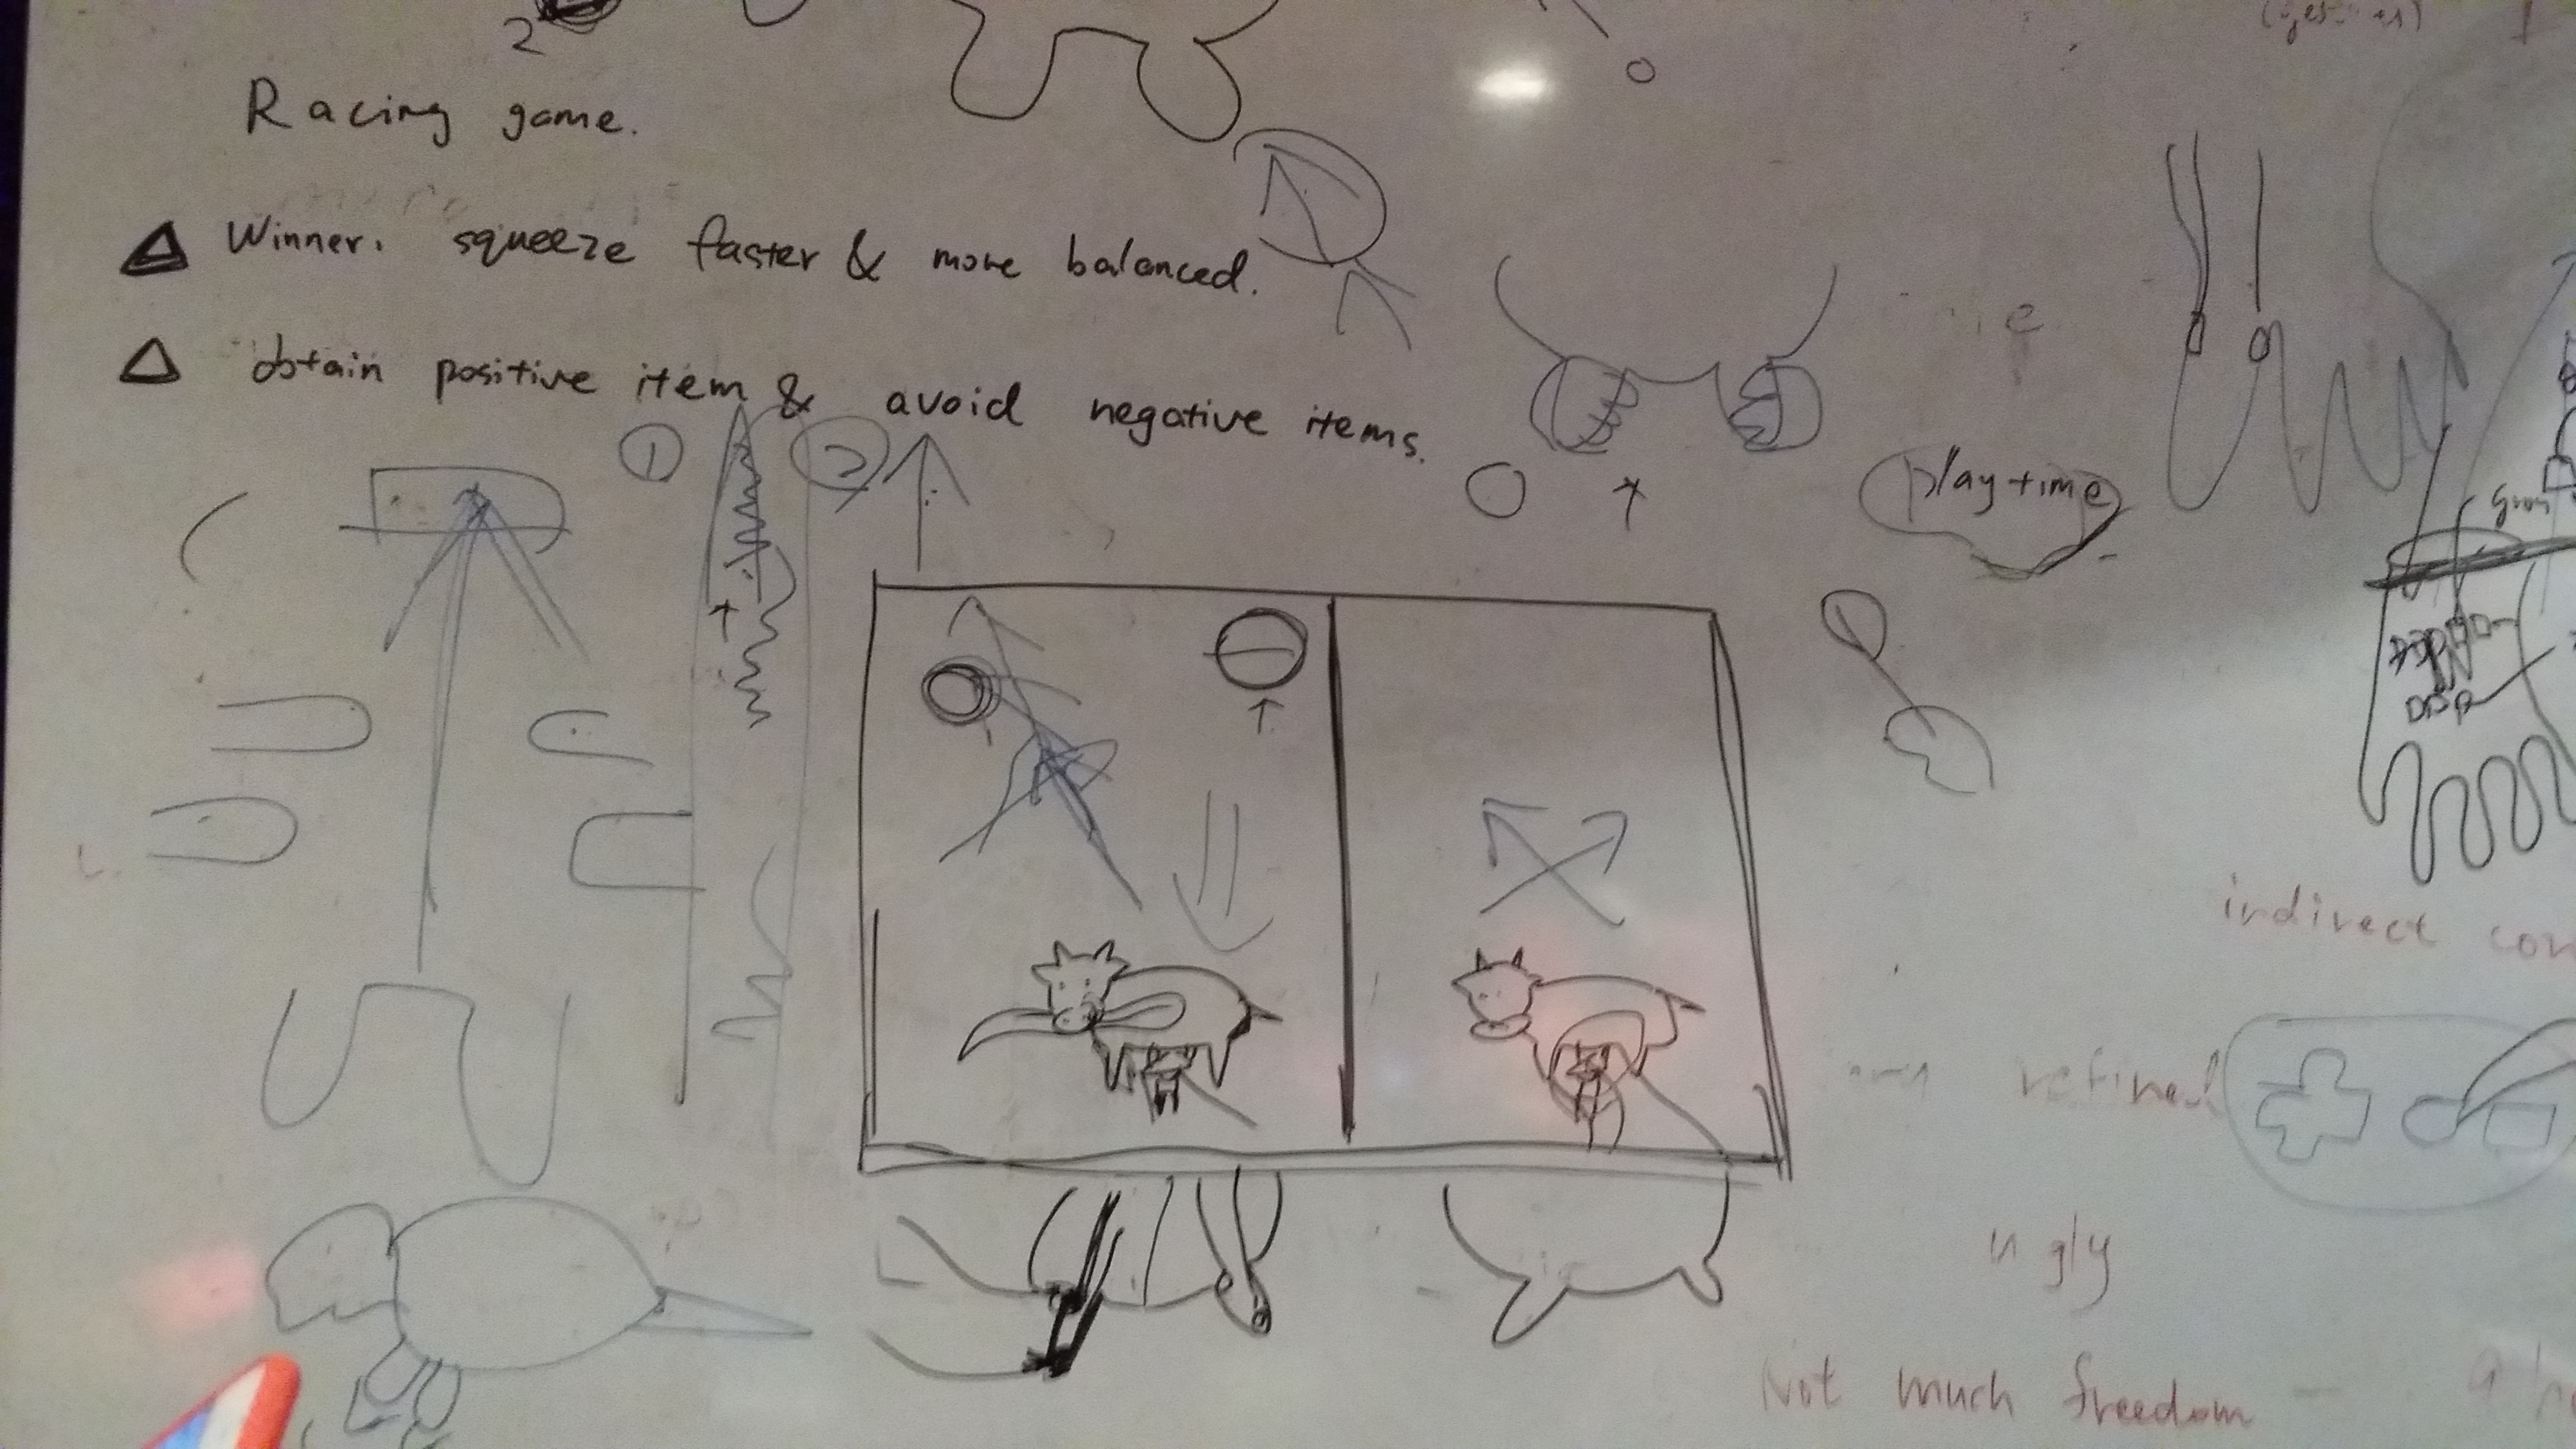 2
Racing game.
Winner. squeeze faster & more balanced.
obtain positive item & avoid negative items.
1
2
playtime
indirect
refined
ugly
Not much freedom